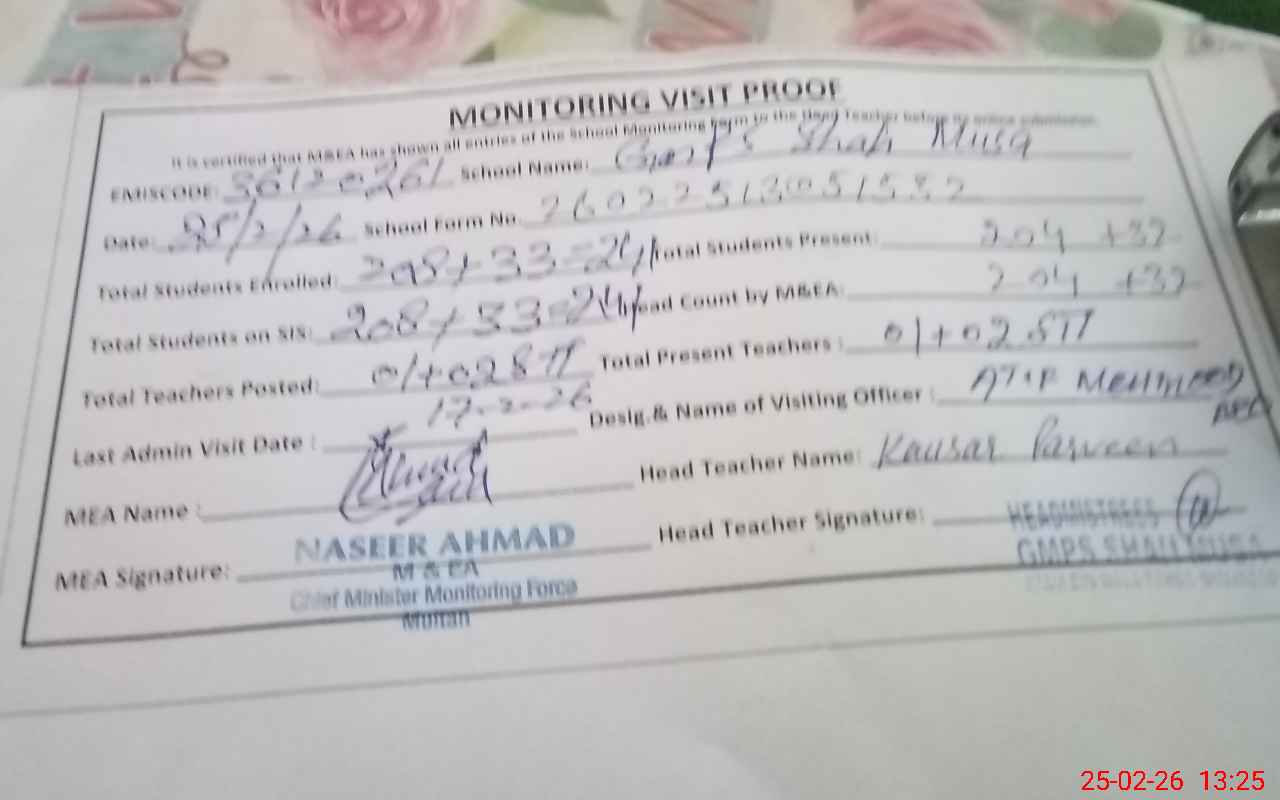 MONITORING VISIT PROOF
It is certified that M&EA has shown all entries of the School Monitoring Form to the Head Teacher before its online submission.
EMISCODE: 36120261 School Name: GMPS Shah Musa
Date: 25/2/26 School Form No. 26022513051532
Total Students Enrolled: 208+33=241 Total Students Present: 204 +32
Total Students on SIS: 208+33=241 Head Count by M&EA: 204 +32
Total Teachers Posted: 01+02 STI Total Present Teachers : 01+02 STI
Last Admin Visit Date : 17-2-26 Desig.& Name of Visiting Officer : ATIF Mehmood AEO
MEA Name : Head Teacher Name: Kausar Parveen
MEA Signature: Head Teacher Signature:
NASEER AHMAD
M & EA
Chief Minister Monitoring Force
Multan
HEADMISTRESS
GMPS SHAH MUSA
25-02-26 13:25